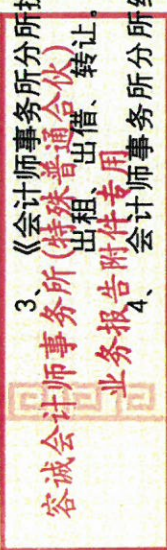 3、《会计师事务所分所
出租、出借、转让。
4、会计师事务所分所
容诚会计师事务所(特殊普通合伙)
业务报告附件专用